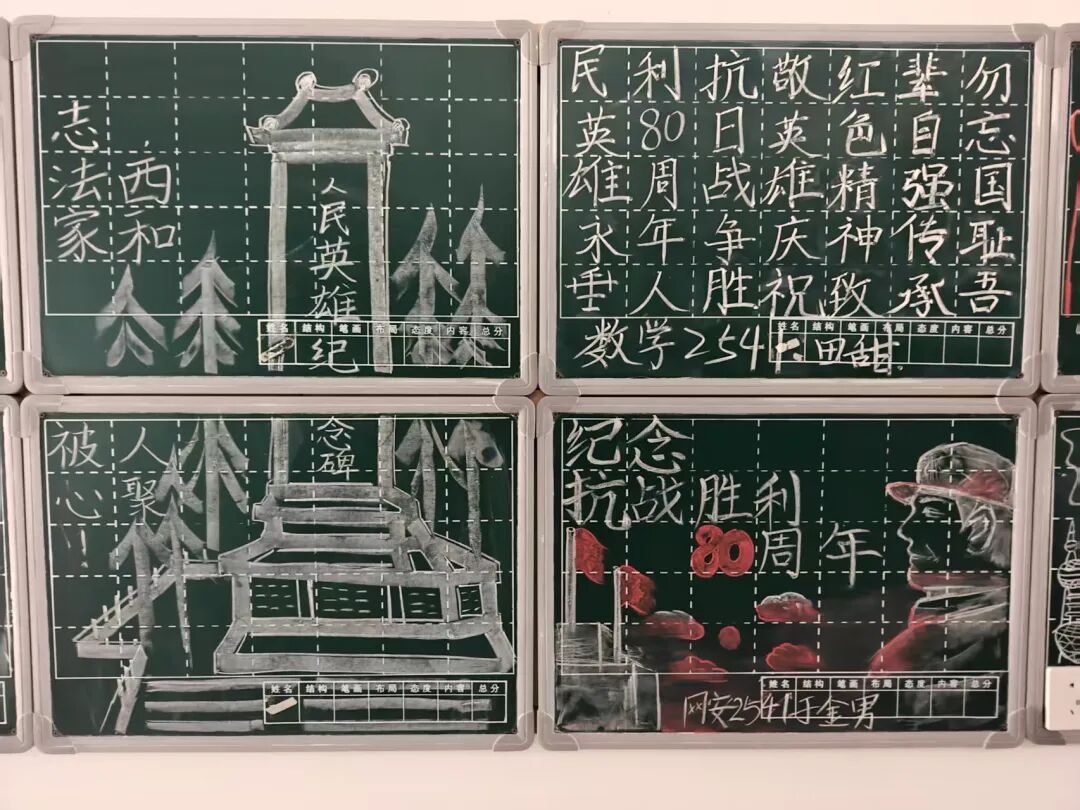 西和
志法家
人民英雄纪
姓名 结构 笔画 布局 态度 内容 总分
勿忘国耻吾
辈自强传承
红色精神致
敬英雄庆祝
抗日战争胜
利80周年人
民英雄永垂
姓名 结构 笔画 布局 态度 内容 总分
数学2541 田甜
念碑
人聚
被心!!
姓名 结构 笔画 布局 态度 内容 总分
纪念
抗战胜利
80周年
姓名 结构 笔画 布局 态度 内容 总分
网安2541于金男